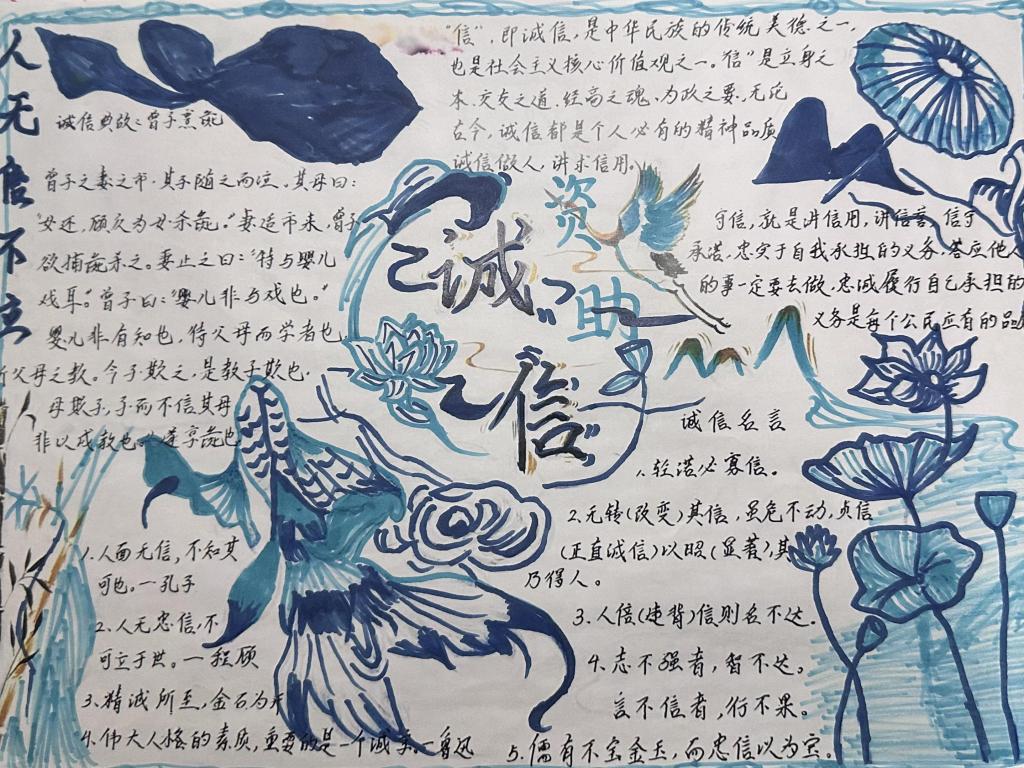 人无信不立
"信"，即诚信，是中华民族的传统美德之一，
也是社会主义核心价值观之一。"信"是立身之
本、交友之道、经商之魂、为政之要，无论
古今，诚信都是个人必有的精神品质
诚信做人，讲求信用。
诚信典故：曾子烹彘
曾子之妻之市，其子随之而泣。其母曰：
"女还，顾反为女杀彘。"妻适市来，曾子
欲捕彘杀之。妻止之曰："特与婴儿
戏耳。"曾子曰："婴儿非与戏也。"
婴儿非有知也，待父母而学者也，
父母之教。今子欺之，是教子欺也。
母欺子，子而不信其母
非以成教也。"遂烹彘也
"诚"
"信"
资助
守信，就是讲信用，讲信誉，信守
承诺，忠实于自我承担的义务，答应他人
的事一定要去做。忠诚履行自己承担的
义务是每个公民应有的品
诚信名言
1、轻诺必寡信。
2、无转(改变)其信，虽危不动，贞信
(正直诚信)以昭(显著)，其
乃得人。
3、人倍(违背)信则名不达。
4、志不强者，智不达。
言不信者，行不果。
5、儒有不宝金玉，而忠信以为宝。
1、人而无信，不知其
可也。一孔子
2、人无忠信，不
可立于世。一程颐
3、精诚所至，金石为开
4、伟大人格的素质，重要的是一个诚字。一鲁迅